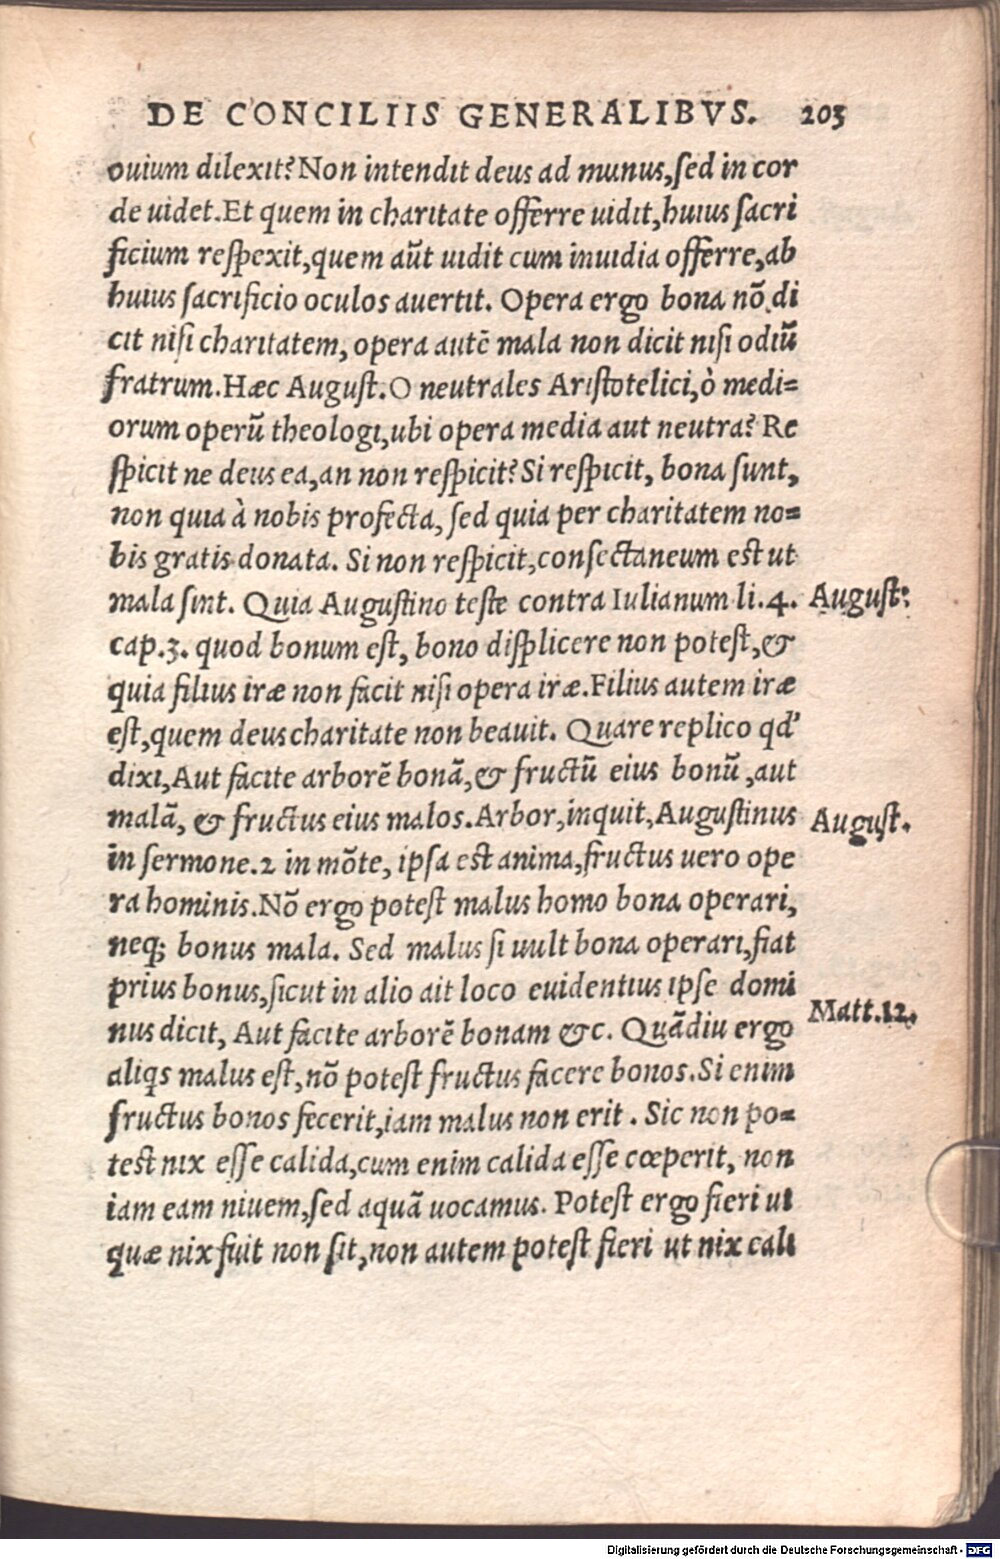 DE CONCILIIS GENERALIBVS. 203
ouium dilexit? Non intendit deus ad munus, sed in cor
de uidet. Et quem in charitate offerre uidit, huius sacri
ficium respexit, quem aũt uidit cum inuidia offerre, ab
huius sacrificio oculos auertit. Opera ergo bona nõ di
cit nisi charitatem, opera autẽ mala non dicit nisi odiũ
fratrum. Hæc August. O neutrales Aristotelici, ò medi=
orum operũ theologi, ubi opera media aut neutra? Re
spicit ne deus ea, an non respicit? Si respicit, bona sunt,
non quia à nobis profecta, sed quia per charitatem no=
bis gratis donata. Si non respicit, consectaneum est ut
mala sint. Quia Augustino teste contra Iulianum li. 4. August:
cap. 3. quod bonum est, bono displicere non potest, &
quia filius iræ non facit nisi opera iræ. Filius autem iræ
est, quem deus charitate non beauit. Quare replico qd'
dixi, Aut facite arborẽ bonã, & fructũ eius bonũ, aut
malã, & fructus eius malos. Arbor, inquit, Augustinus August.
in sermone. 2 in mõte, ipsa est anima, fructus uero ope
ra hominis. Nõ ergo potest malus homo bona operari,
neq; bonus mala. Sed malus si uult bona operari, fiat
prius bonus, sicut in alio ait loco euidentius ipse domi
nus dicit, Aut facite arborẽ bonam &c. Quãdiu ergo Matt. 12.
aliqs malus est, nõ potest fructus facere bonos. Si enim
fructus bonos fecerit, iam malus non erit. Sic non po=
test nix esse calida, cum enim calida esse cœperit, non
iam eam niuem, sed aquã uocamus. Potest ergo fieri ut
quæ nix fuit non sit, non autem potest fieri ut nix cali
Digitalisierung gefördert durch die Deutsche Forschungsgemeinschaft - DFG